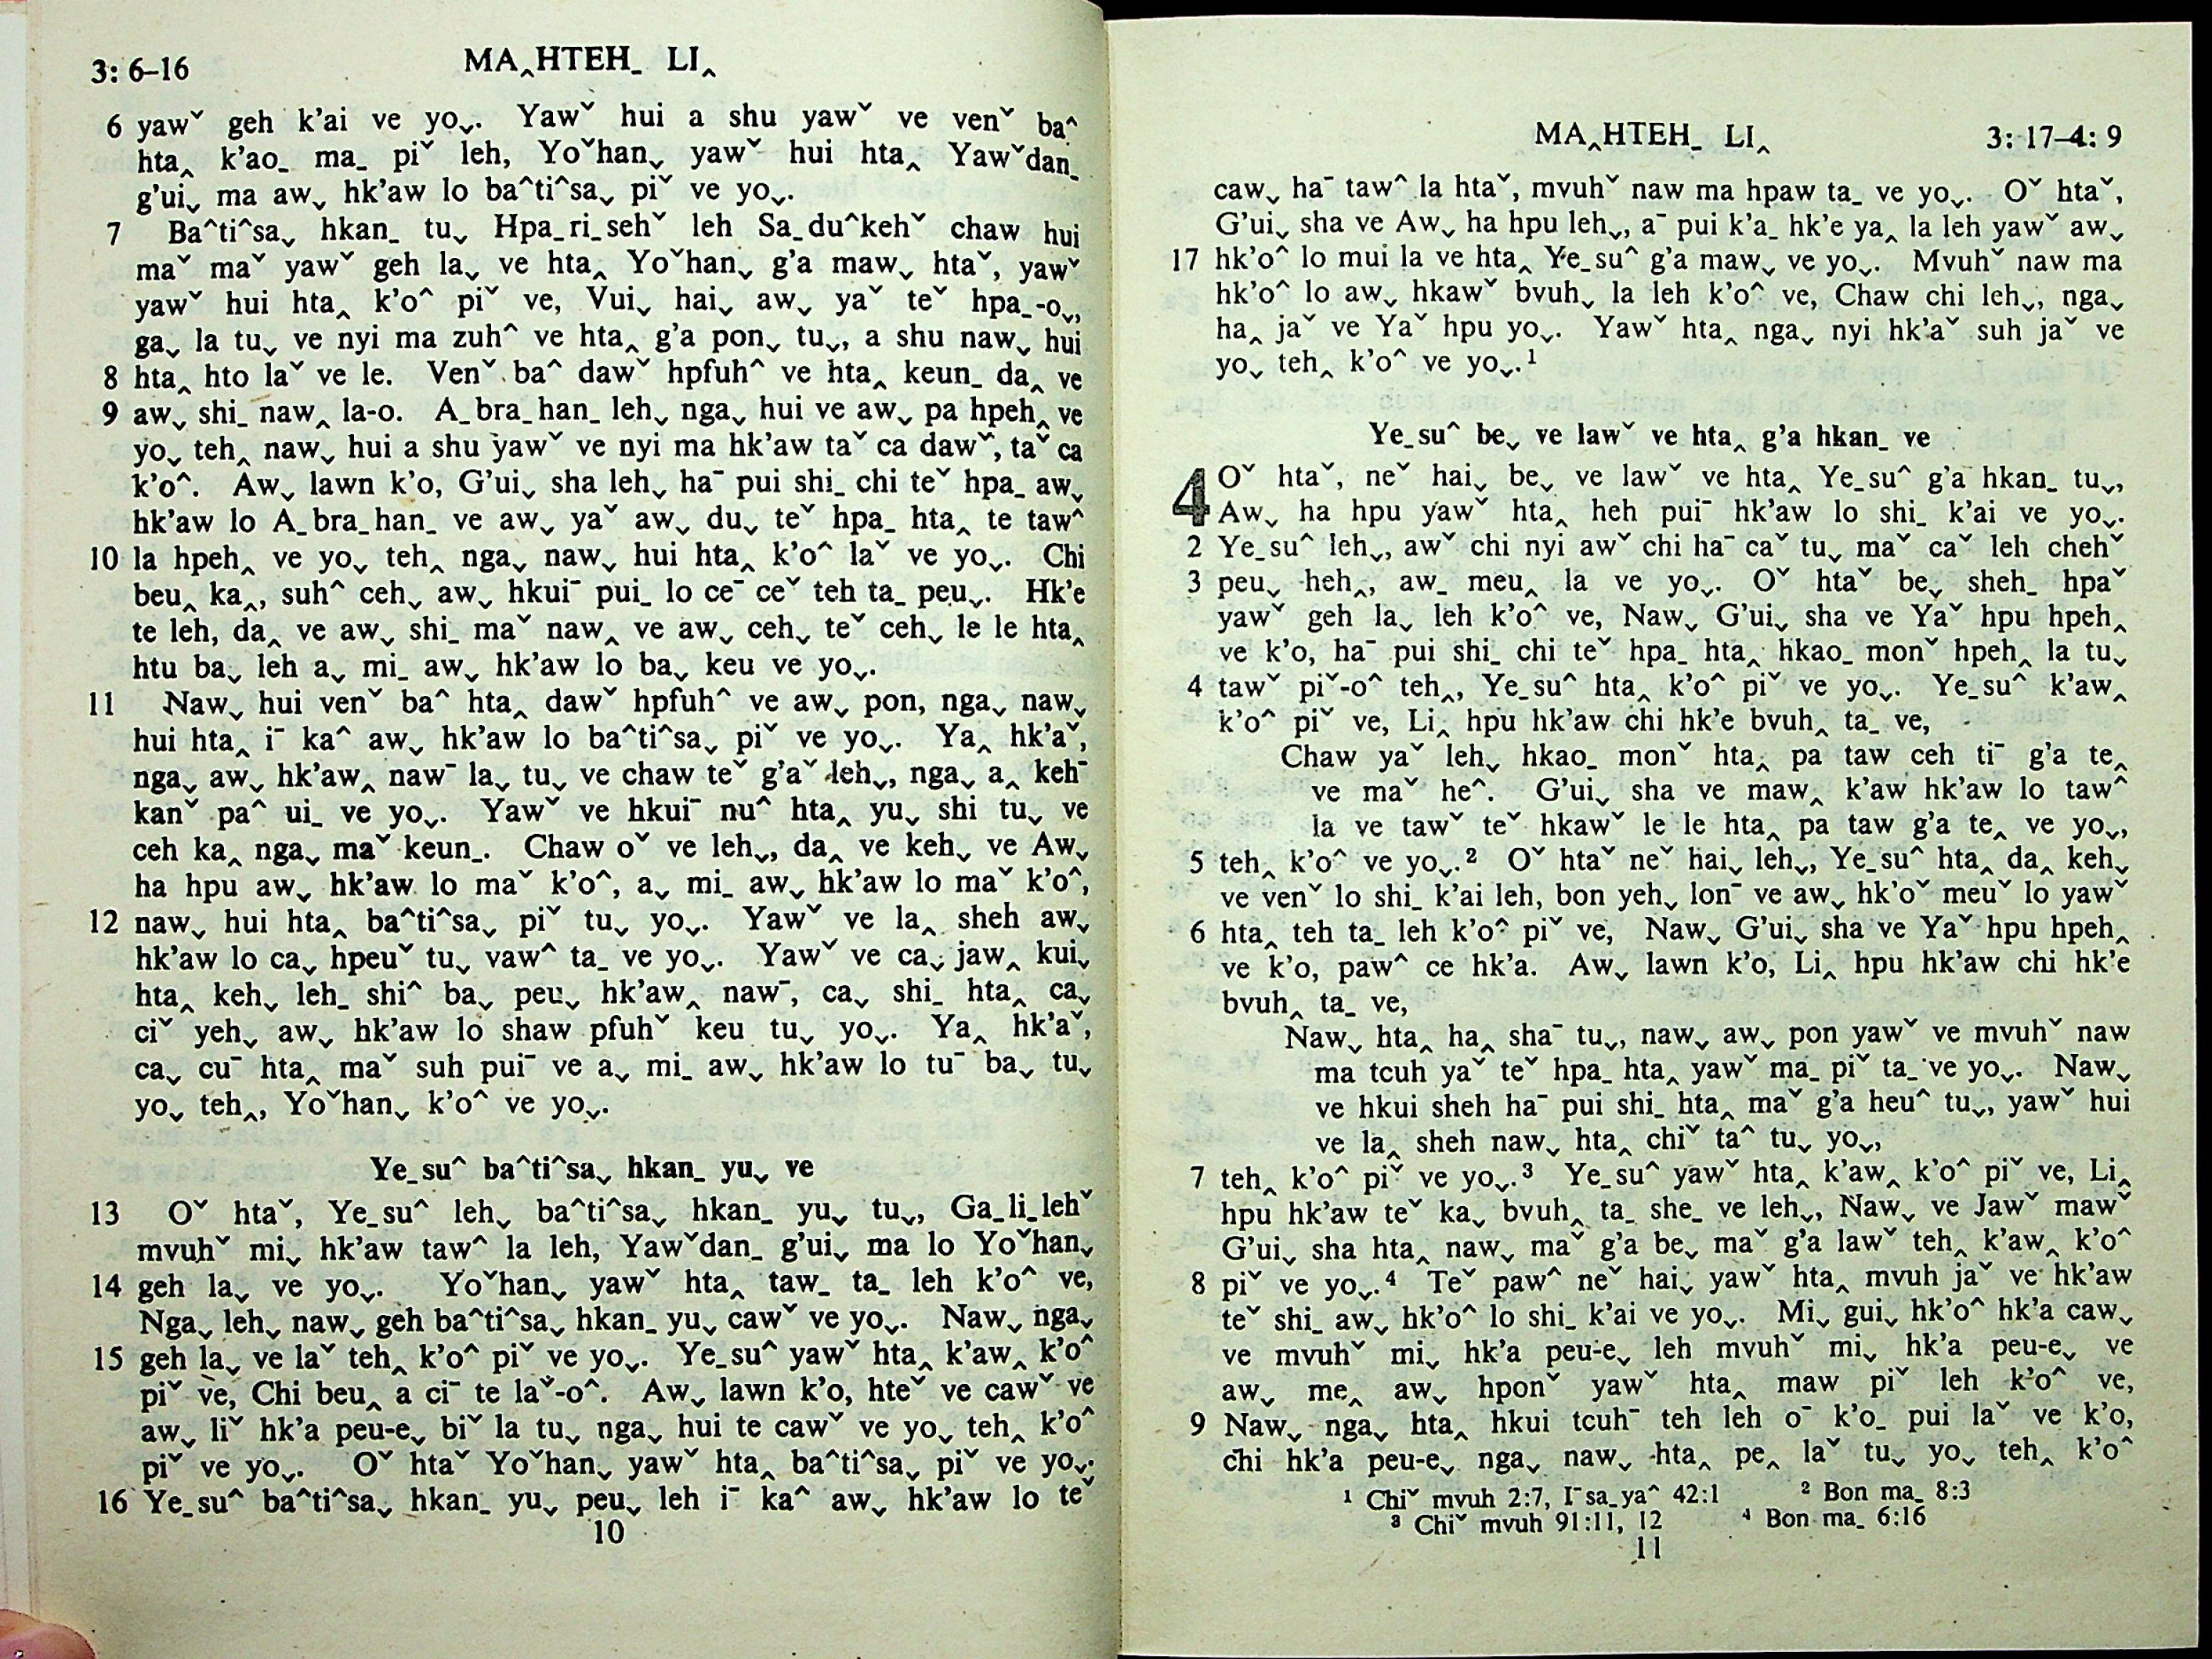 3: 6–16 MA‸HTEH_ LI‸
6 yawˇ geh k'ai ve yoˬ. Yawˇ hui a shu yawˇ ve venˇ ba^
hta‸ k'ao_ ma_ piˇ leh, Yoˇhanˬ yawˇ hui hta‸ Yawˇdan_
g'uiˬ ma awˬ hk'aw lo ba^ti^saˬ piˇ ve yoˬ.
7 Ba^ti^saˬ hkan_ tuˬ Hpa_ri_sehˇ leh Sa_du^kehˇ chaw hui
maˇ maˇ yawˇ geh laˬ ve hta‸ Yoˇhanˬ g'a mawˬ htaˇ, yawˇ
yawˇ hui hta‸ k'o^ piˇ ve, Vuiˬ haiˬ awˬ yaˇ teˇ hpa_-oˬ,
gaˬ la tuˬ ve nyi ma zuh^ ve hta‸ g'a ponˬ tuˬ, a shu nawˬ hui
8 hta‸ hto laˇ ve le. Venˇ ba^ dawˇ hpfuh^ ve hta‸ keun_ da‸ ve
9 awˬ shi_ naw‸ la-o. A_bra_han_ lehˬ ngaˬ hui ve awˬ pa hpeh‸ ve
yoˬ teh‸ nawˬ hui a shu yawˇ ve nyi ma hk'aw taˇ ca dawˇ, taˇ ca
k'o^. Awˬ lawn k'o, G'uiˬ sha lehˬ haˉ pui shi_ chi teˇ hpa_ awˬ
hk'aw lo A_bra_han_ ve awˬ yaˇ awˬ duˬ teˇ hpa_ hta‸ te taw^
10 la hpeh‸ ve yoˬ teh‸ ngaˬ nawˬ hui hta‸ k'o^ laˇ ve yoˬ. Chi
beu‸ ka‸, suh^ cehˬ awˬ hkuiˉ pui_ lo ceˉ ceˇ teh ta_ peuˬ. Hk'e
te leh, da‸ ve awˬ shi_ maˇ naw‸ ve awˬ cehˬ teˇ cehˬ le le hta‸
htu baˬ leh aˬ mi_ awˬ hk'aw lo baˬ keu ve yoˬ.
11 Nawˬ hui venˇ ba^ hta‸ dawˇ hpfuh^ ve awˬ pon, ngaˬ nawˬ
hui hta‸ iˉ ka^ awˬ hk'aw lo ba^ti^saˬ piˇ ve yoˬ. Ya‸ hk'aˇ,
ngaˬ awˬ hk'aw‸ nawˉ laˬ tuˬ ve chaw teˇ g'aˇ lehˬ, ngaˬ a‸ kehˉ
kanˇ pa^ ui_ ve yoˬ. Yawˇ ve hkuiˉ nu^ hta‸ yuˬ shi tuˬ ve
ceh ka‸ ngaˬ maˇ keun_. Chaw oˇ ve lehˬ, da‸ ve kehˬ ve Awˬ
ha hpu awˬ hk'aw lo maˇ k'o^, aˬ mi_ awˬ hk'aw lo maˇ k'o^,
12 nawˬ hui hta‸ ba^ti^saˬ piˇ tuˬ yoˬ. Yawˇ ve la‸ sheh awˬ
hk'aw lo caˬ hpeuˇ tuˬ vaw^ ta_ ve yoˬ. Yawˇ ve caˬ jaw‸ kuiˬ
hta‸ kehˬ leh_ shi^ baˬ peuˬ hk'aw‸ nawˉ, caˬ shi_ hta‸ caˬ
ciˇ yehˬ awˬ hk'aw lo shaw pfuhˇ keu tuˬ yoˬ. Ya‸ hk'aˇ,
caˬ cuˉ hta‸ maˇ suh puiˉ ve aˬ mi_ awˬ hk'aw lo tuˉ baˬ tuˬ
yoˬ teh‸, Yoˇhanˬ k'o^ ve yoˬ.
Ye_su^ ba^ti^saˬ hkan_ yuˬ ve
13 Oˇ htaˇ, Ye_su^ lehˬ ba^ti^saˬ hkan_ yuˬ tuˬ, Ga_li_lehˇ
mvuhˇ miˬ hk'aw taw^ la leh, Yawˇdan_ g'uiˬ ma lo Yoˇhanˬ
14 geh laˬ ve yoˬ. Yoˇhanˬ yawˇ hta‸ taw_ ta_ leh k'o^ ve,
Ngaˬ lehˬ nawˬ geh ba^ti^saˬ hkan_ yuˬ cawˇ ve yoˬ. Nawˬ ngaˬ
15 geh laˬ ve laˇ teh‸ k'o^ piˇ ve yoˬ. Ye_su^ yawˇ hta‸ k'aw‸ k'o^
piˇ ve, Chi beu‸ a ciˉ te laˇ-o^. Awˬ lawn k'o, hteˇ ve cawˇ ve
awˬ liˇ hk'a peu-eˬ biˇ la tuˬ ngaˬ hui te cawˇ ve yoˬ teh‸ k'o^
piˇ ve yoˬ. Oˇ htaˇ Yoˇhanˬ yawˇ hta‸ ba^ti^saˬ piˇ ve yoˬ.
16 Ye_su^ ba^ti^saˬ hkan_ yuˬ peuˬ leh iˉ ka^ awˬ hk'aw lo teˇ
10
MA‸HTEH_ LI‸ 3: 17–4: 9
cawˬ haˉ taw^ la htaˇ, mvuhˇ naw ma hpaw ta_ ve yoˬ. Oˇ htaˇ,
G'uiˬ sha ve Awˬ ha hpu lehˬ, aˉ pui k'a_ hk'e ya‸ la leh yawˇ awˬ
17 hk'o^ lo mui la ve hta‸ Ye_su^ g'a mawˬ ve yoˬ. Mvuhˇ naw ma
hk'o^ lo awˬ hkawˇ bvuhˬ la leh k'o^ ve, Chaw chi lehˬ, ngaˬ
ha‸ jaˇ ve Yaˇ hpu yoˬ. Yawˇ hta‸ ngaˬ nyi hk'aˇ suh jaˇ ve
yoˬ teh‸ k'o^ ve yoˬ.¹
Ye_su^ beˬ ve lawˇ ve hta‸ g'a hkan_ ve
4 Oˇ htaˇ, neˇ haiˬ beˬ ve lawˇ ve hta‸ Ye_su^ g'a hkan_ tuˬ,
Awˬ ha hpu yawˇ hta‸ heh puiˉ hk'aw lo shi_ k'ai ve yoˬ.
2 Ye_su^ lehˬ, awˇ chi nyi awˇ chi haˉ caˇ tuˬ maˇ caˇ leh chehˇ
3 peuˬ heh‸, aw_ meu‸ la ve yoˬ. Oˇ htaˇ beˬ sheh_ hpaˇ
yawˇ geh laˬ leh k'o^ ve, Nawˬ G'uiˬ sha ve Yaˇ hpu hpeh‸
ve k'o, haˉ pui shi_ chi teˇ hpa_ hta‸ hkao_ monˇ hpeh‸ la tuˬ
4 tawˇ piˇ-o^ teh‸, Ye_su^ hta‸ k'o^ piˇ ve yoˬ. Ye_su^ k'aw‸
k'o^ piˇ ve, Li‸ hpu hk'aw chi hk'e bvuh‸ ta_ ve,
Chaw yaˇ lehˬ hkao_ monˇ hta‸ pa taw ceh tiˉ g'a te‸
ve maˇ he^. G'uiˬ sha ve maw‸ k'aw hk'aw lo taw^
la ve tawˇ teˇ hkawˇ le le hta‸ pa taw g'a te‸ ve yoˬ,
5 teh‸ k'o^ ve yoˬ.² Oˇ htaˇ neˇ haiˬ lehˬ, Ye_su^ hta‸ da‸ kehˬ
ve venˇ lo shi_ k'ai leh, bon yehˬ lonˉ ve awˬ hk'oˇ meuˇ lo yawˇ
6 hta‸ teh ta_ leh k'o^ piˇ ve, Nawˬ G'uiˬ sha ve Yaˇ hpu hpeh‸
ve k'o, paw^ ce hk'a. Awˬ lawn k'o, Li‸ hpu hk'aw chi hk'e
bvuh‸ ta_ ve,
Nawˬ hta‸ ha‸ shaˉ tuˬ, nawˬ awˬ pon yawˇ ve mvuhˇ naw
ma tcuh yaˇ teˇ hpa_ hta‸ yawˇ ma_ piˇ ta_ ve yoˬ. Nawˬ
ve hkui sheh haˉ pui shi_ hta‸ maˇ g'a heu^ tuˬ, yawˇ hui
ve la‸ sheh nawˬ hta‸ chiˇ ta^ tuˬ yoˬ,
7 teh‸ k'o^ piˇ ve yoˬ.³ Ye_su^ yawˇ hta‸ k'aw‸ k'o^ piˇ ve, Li‸
hpu hk'aw teˇ kaˬ bvuh‸ ta_ she_ ve lehˬ, Nawˬ ve Jawˇ mawˇ
G'uiˬ sha hta‸ nawˬ maˇ g'a beˬ maˇ g'a lawˇ teh‸ k'aw‸ k'o^
8 piˇ ve yoˬ.⁴ Teˇ paw^ neˇ haiˬ yawˇ hta‸ mvuh jaˇ ve hk'aw
teˇ shi_ awˬ hk'o^ lo shi_ k'ai ve yoˬ. Miˬ guiˬ hk'o^ hk'a cawˬ
ve mvuhˇ miˬ hk'a peu-eˬ leh mvuhˇ miˬ hk'a peu-eˬ ve
awˬ me‸ awˬ hponˇ yawˇ hta‸ maw piˇ leh k'o^ ve,
9 Nawˬ ngaˬ hta‸ hkui tcuhˉ teh leh oˉ k'o_ pui laˇ ve k'o,
chi hk'a peu-eˬ ngaˬ nawˬ hta‸ pe‸ laˇ tuˬ yoˬ teh‸ k'o^
¹ Chiˇ mvuh 2:7, Iˉsa_ya^ 42:1 ² Bon ma_ 8:3
³ Chiˇ mvuh 91:11, 12 ⁴ Bon ma_ 6:16
11